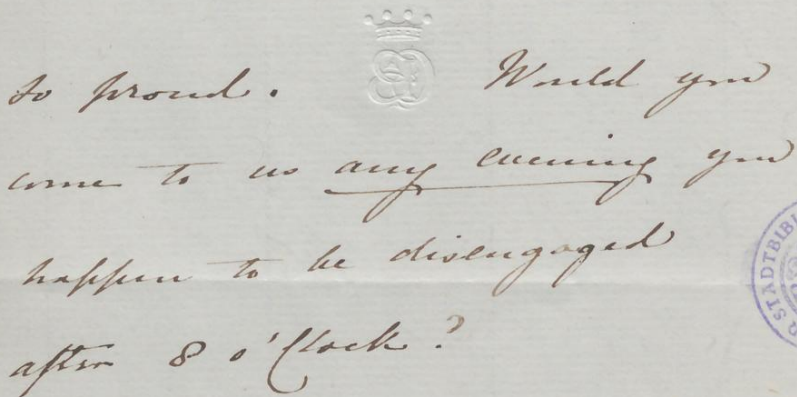 so proud. Would you
come to us any evening you
happen to be disengaged
after 8 o'Clock?
STADTBIBL